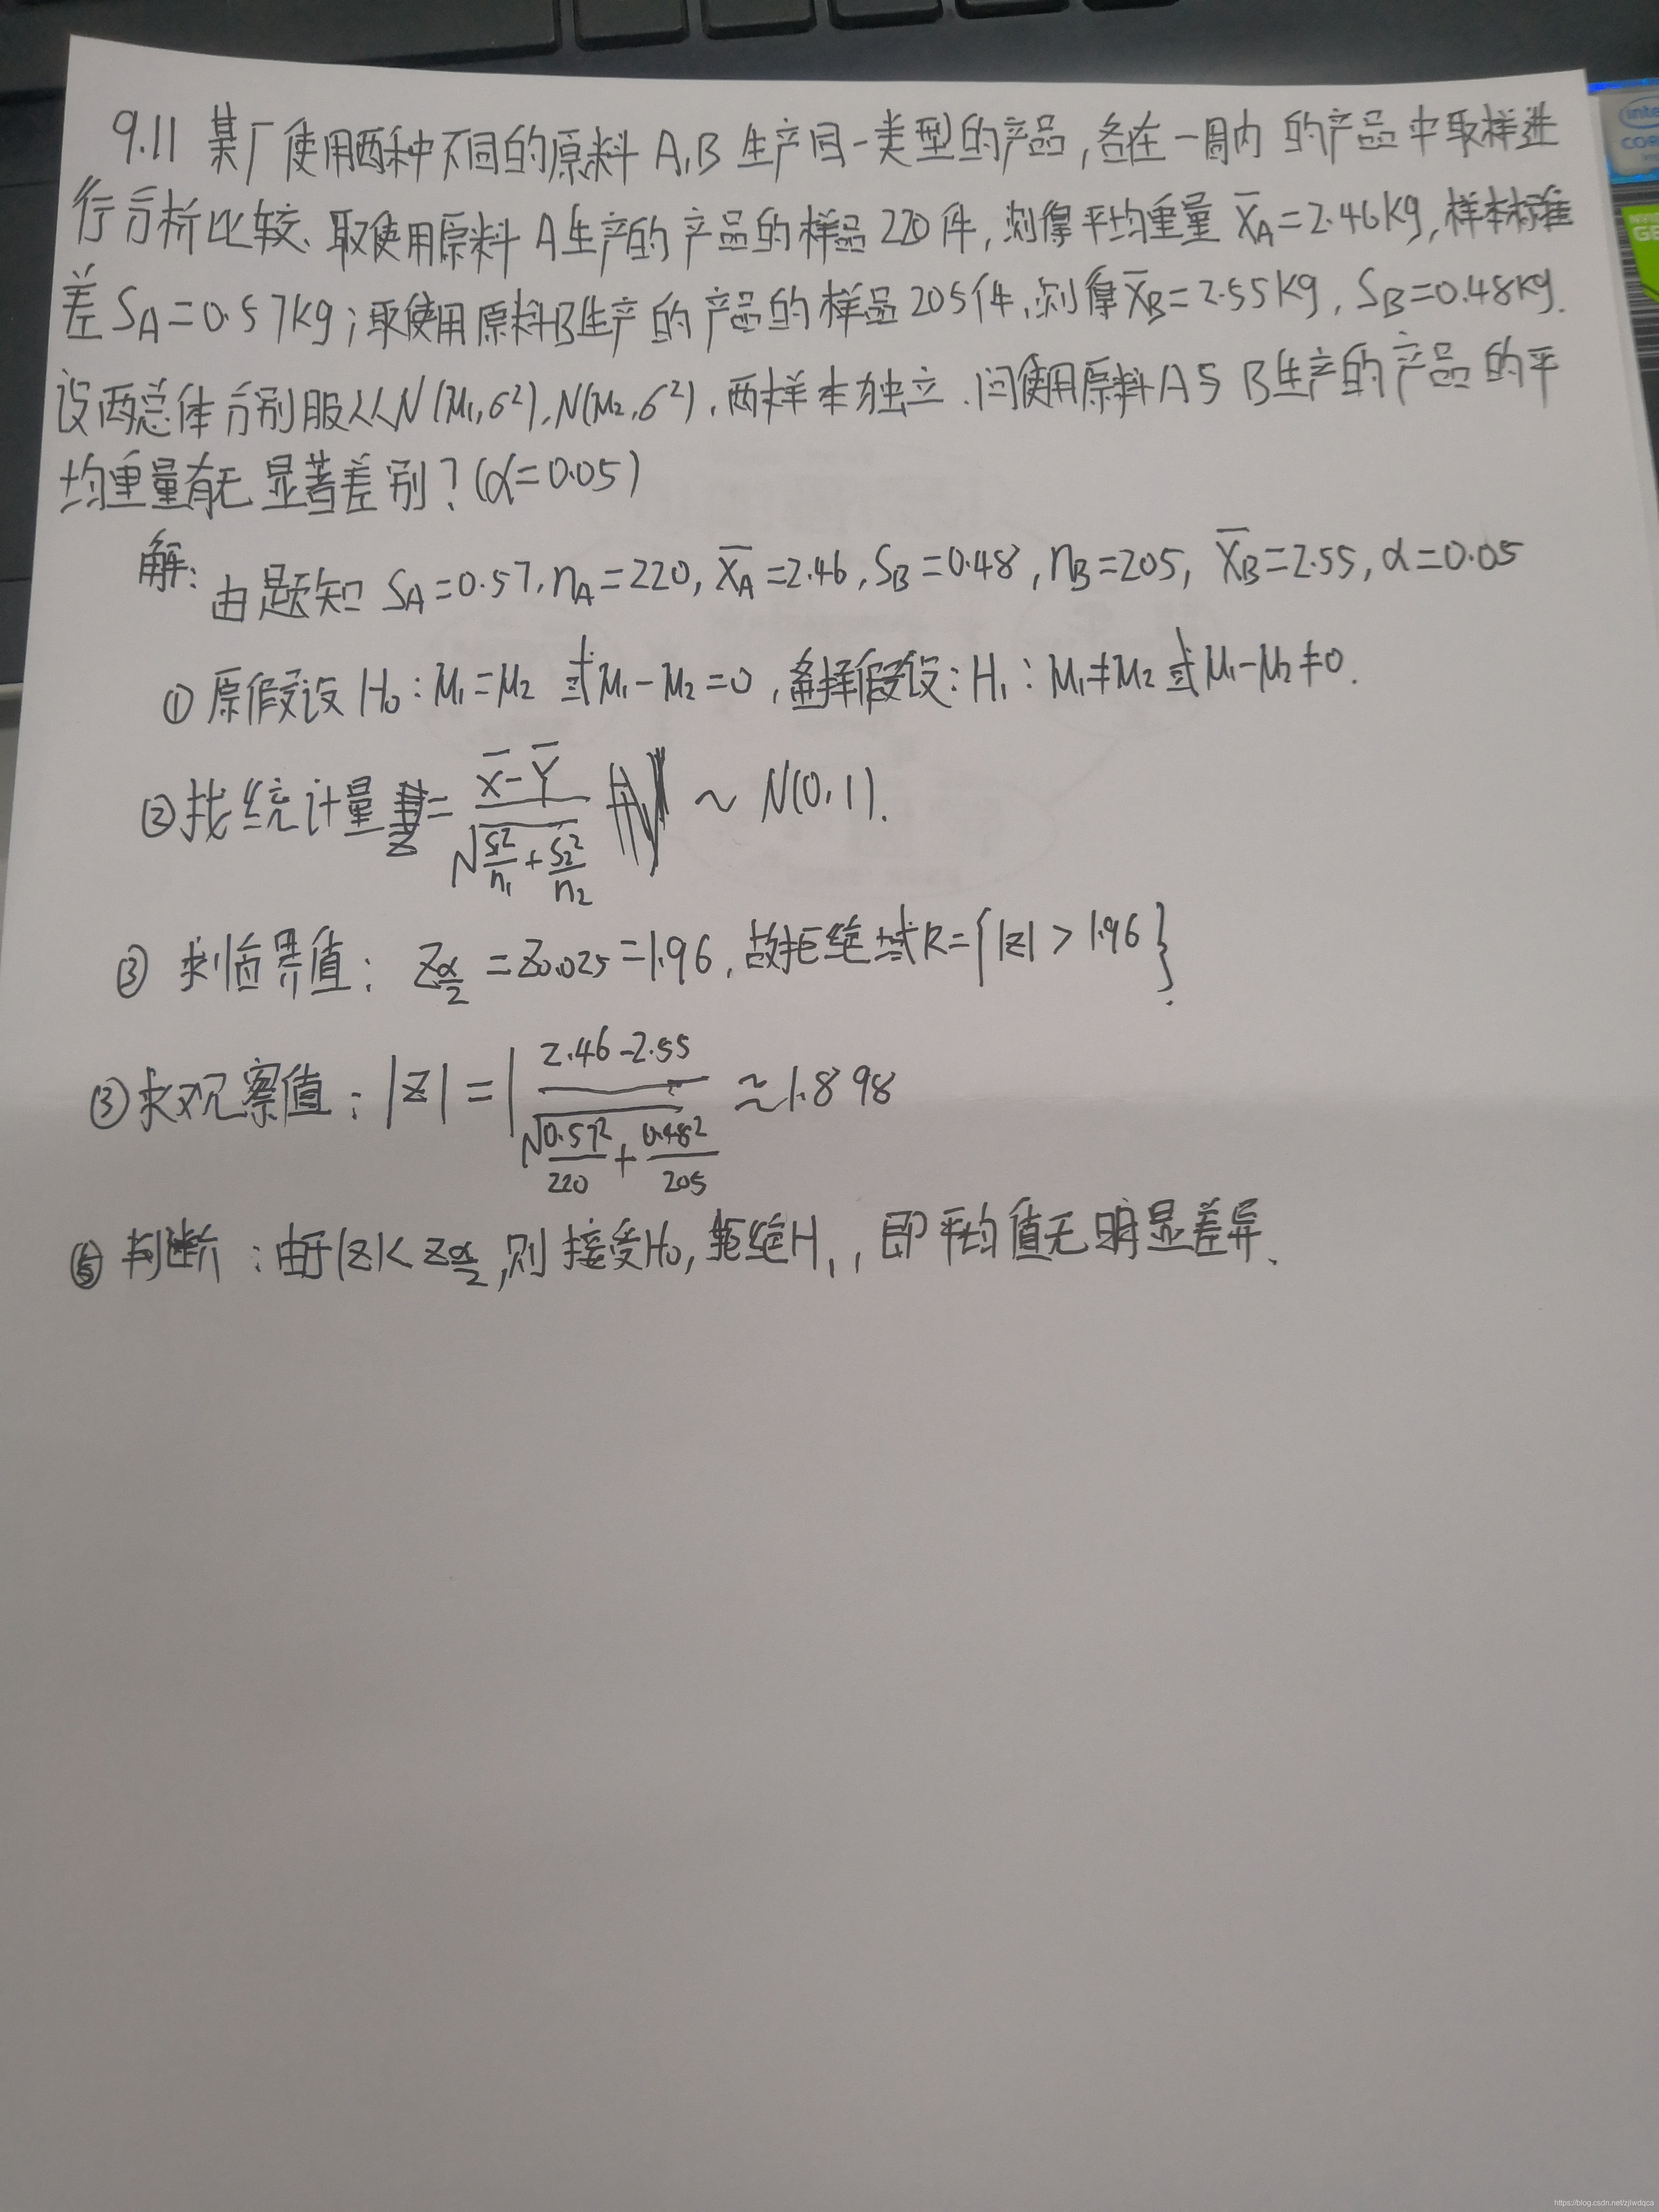 9.11 某厂使用两种不同的原料 A,B 生产同一类型的产品,各在一周内的产品中取样进
行分析比较、取使用原料 A生产的产品的样品220件,测得平均重量 X̄A=2.46kg,样本标准
差 SA=0.57kg;取使用原料B生产的产品的样品205件,测得X̄B=2.55kg,SB=0.48kg.
设两总体分别服从N(μ1,σ²),N(μ2,σ²),两样本独立.问使用原料A与B生产的产品的平
均重量有无显著差别?(α=0.05)
解: 由题知 SA=0.57,nA=220,X̄A=2.46,SB=0.48,nB=205,X̄B=2.55,α=0.05
① 原假设 H0:μ1=μ2 或μ1-μ2=0,备择假设:H1:μ1≠μ2或μ1-μ2≠0.
②找统计量 Z= (X̄-Ȳ)/√(S1²/n1+S2²/n2) ~ N(0,1).
③ 求临界值: Zα/2=Z0.025=1.96,故拒绝域R={|Z|>1.96}.
③求观察值:|Z|=|(2.46-2.55)/√(0.57²/220+0.48²/205) ≈1.898
⑤ 判断:由于|Z|<Zα/2,则接受H0,拒绝H1,即平均值无明显差异、
inte
COR
NVID
GE
https://blog.csdn.net/zjlwdqca